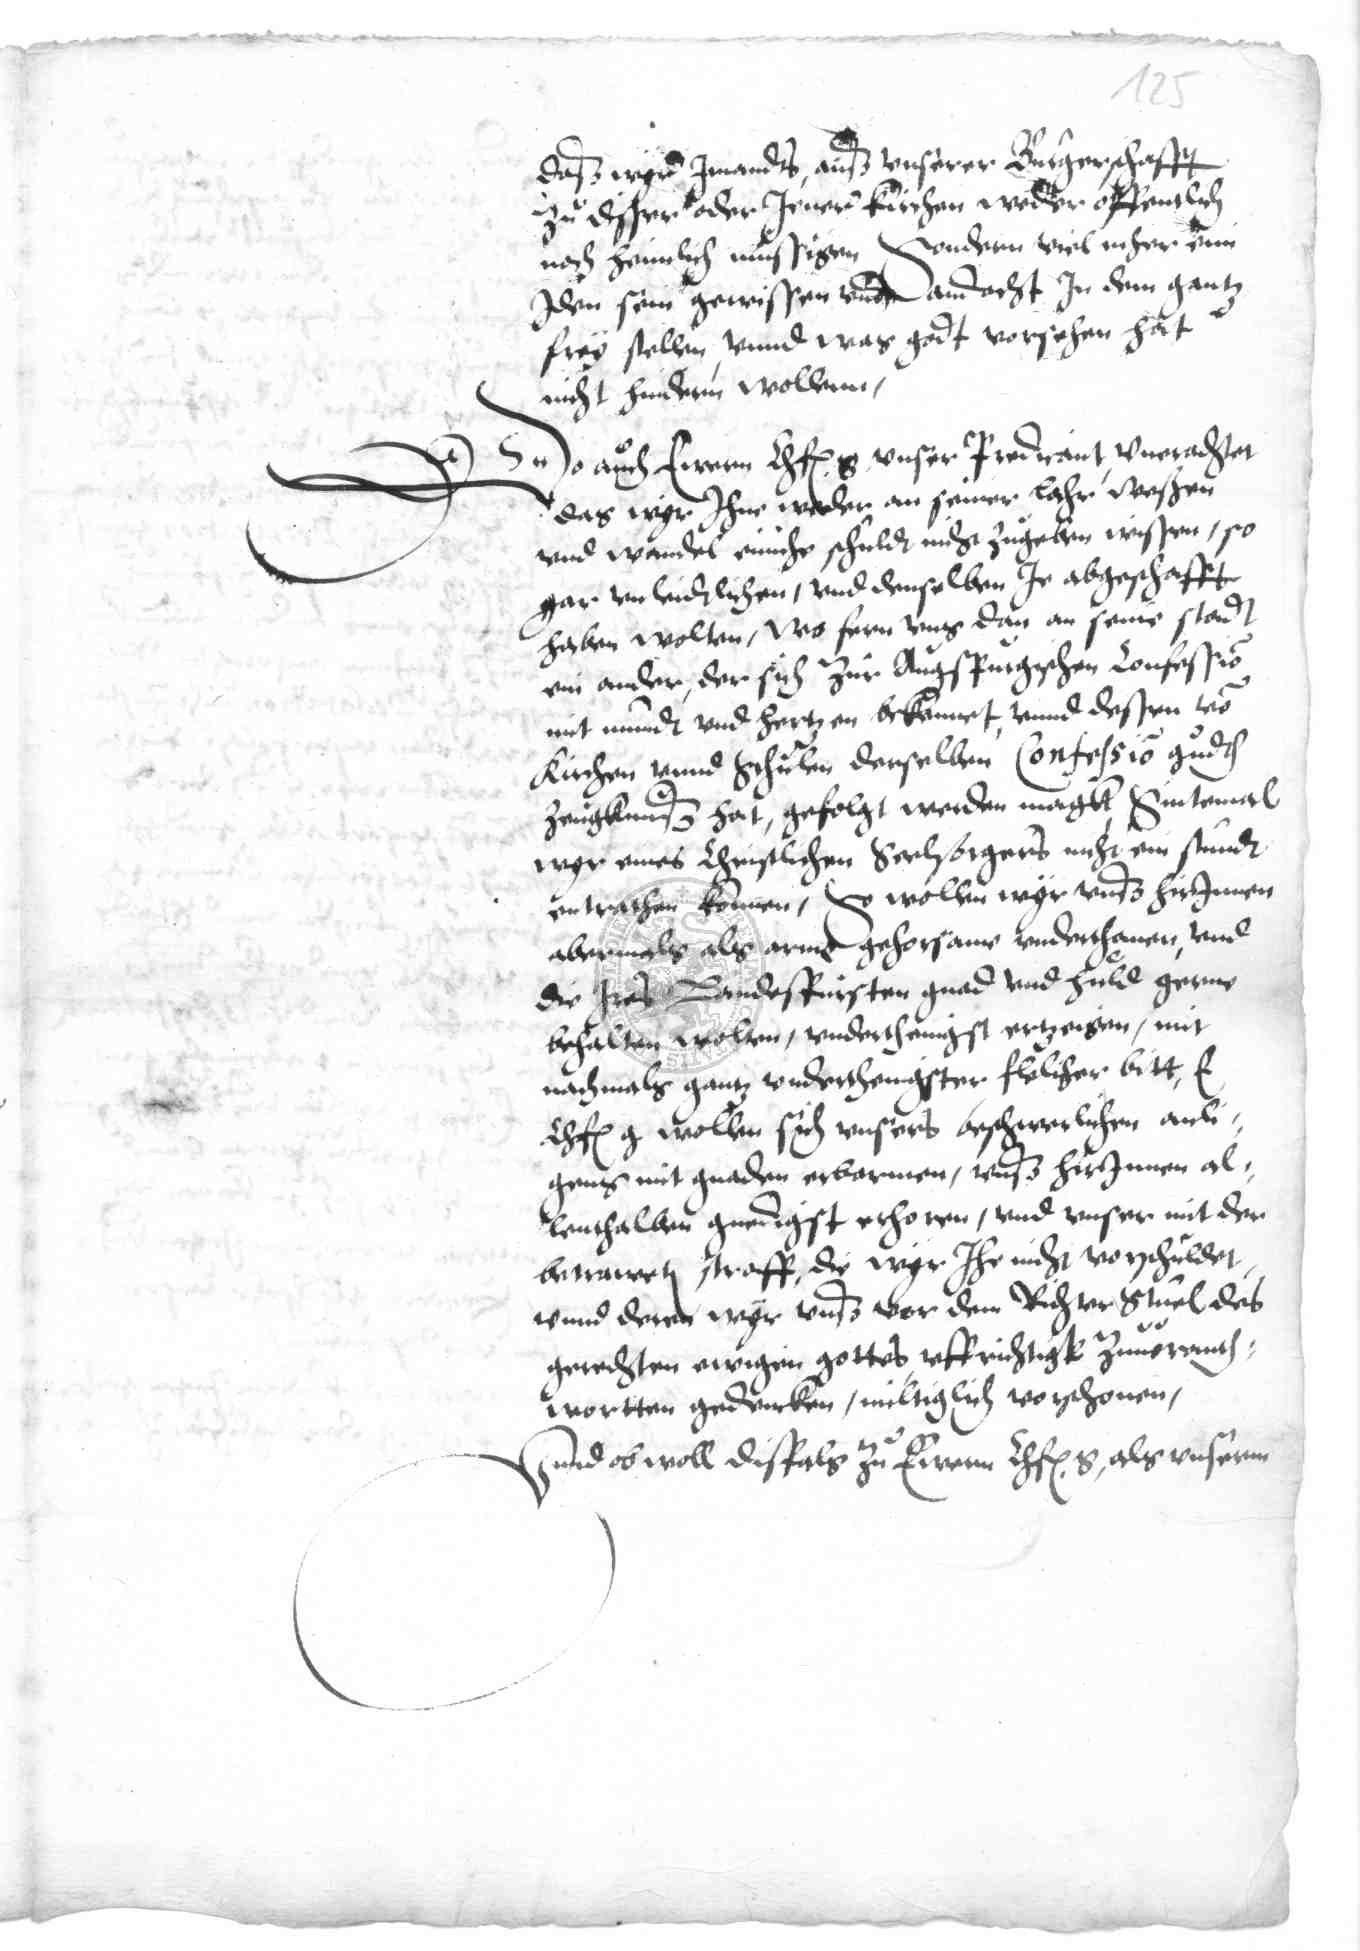 125
daß wyr Jmandts, auß vnserer Burgerschafft
zu disser oder Jener kirchen weder offentlich
noch heimlich mussigen Sondern viel mher eim
Jden sein gewissen vnd andacht Jn dem gantz
frey stellen, vnnd was godt vorsehen hat
nicht hindern wollenn,
So auch Ewern Chf. g vnser Predicant, vnerachtet
das wyr Jhne weder an seiner lahr, weßen
vnd wandel einiche schuldt nicht zugeben wissen, so
gar vnleidtlichen, vnd denselben Je abgeschafft
haben wolten, wo fern vns dan an seine stadt
ein ander, der sich zur Augspurgischen Confession
mit mundt vnd hertzen bekennet, vnnd dessen von
kirchen vnnd Schulen derselben Confession gudth
zeugknuß hat, gefolgt werden magk, Sintemal
wyr eines Christlichen Seelsorgers nicht ein stundt
entrathen konnen, So wollen wyr vnß hirJnnen
abermals als arme gehorsame vnderthanen, vnd
die Jres Landesfursten gnad vnd huld gerne
behalten wolten, vnderthenigst ertzeigen, mit
nachmals gantz vnderthenigster flelicher bitt, E
Chf. g wollen sich vnsers beschwerlichen anli¬
gens mit gnaden erbarmen, vnß hirJnnen al¬
lenthalben gnedigst erhoren, vnd vnser mit der
betraweten straff, die wyr Jhe nicht vorschuldet,
vnnd deren wyr vnß vor dem Richter Stuel des
gerechten ewigen gottes vffrichtigk zuuoranth¬
wortten gedencken, miltiglich vorschonen,
Vnnd ob woll dissfals zu Ewern Chf. g, als vnserm